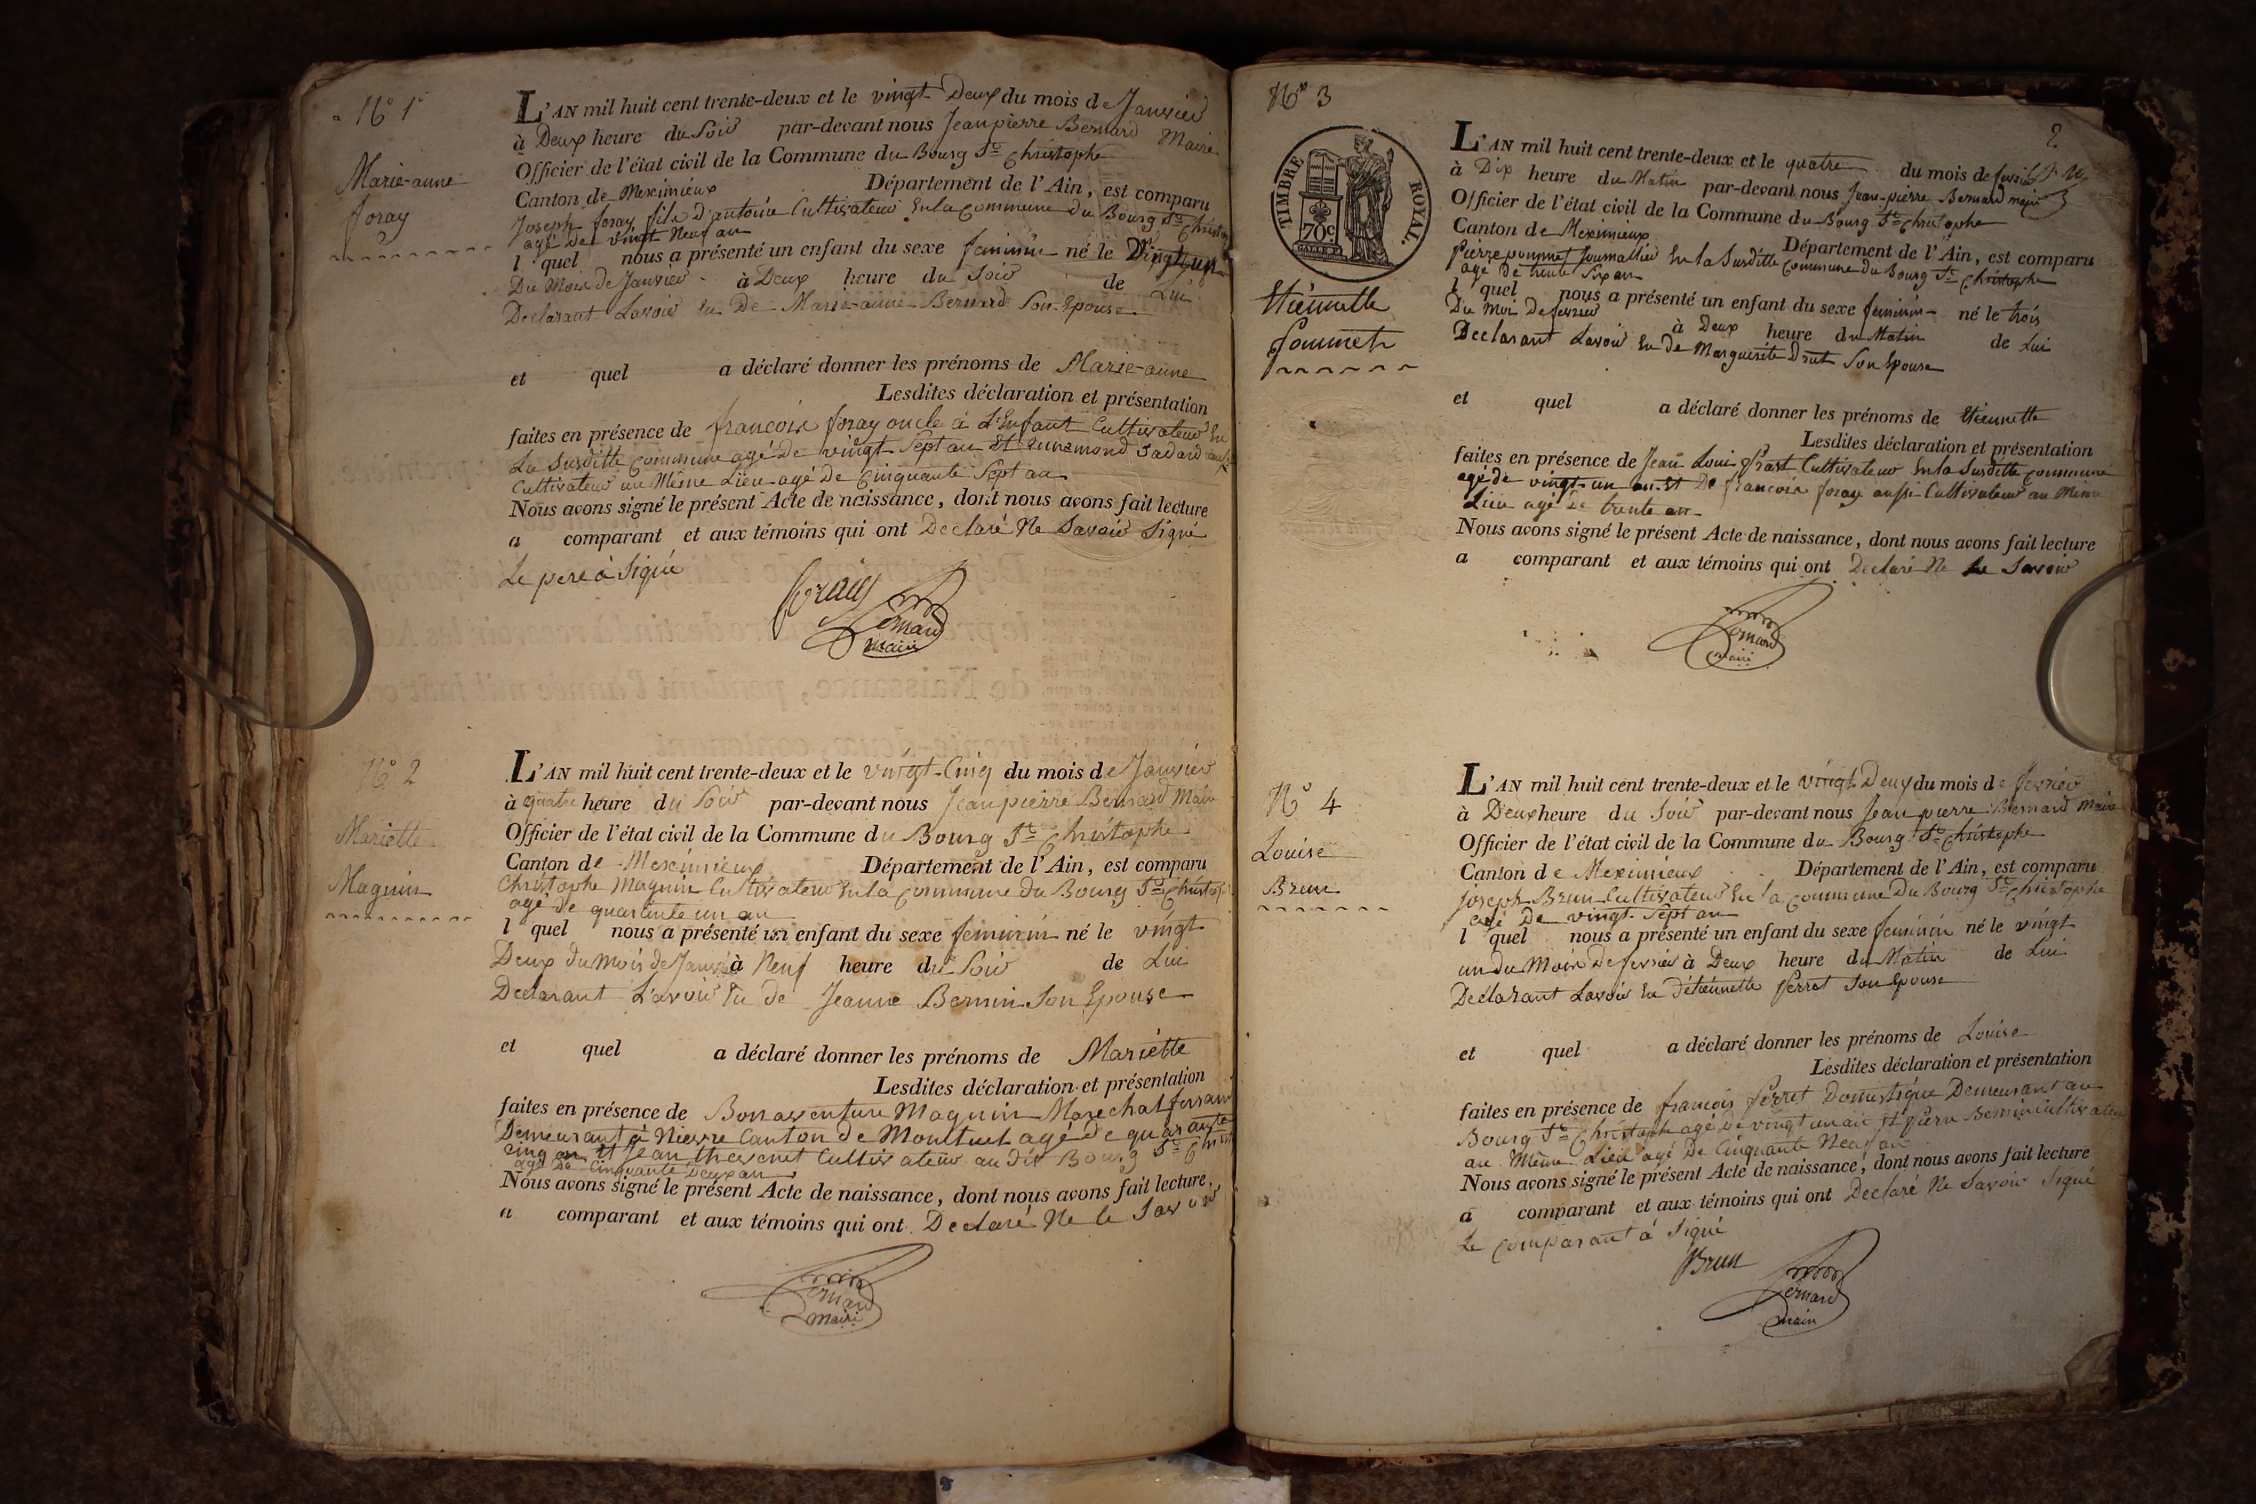 N° 1er
Marie-anne
foray
L'AN mil huit cent trente-deux et le vingt Deux du mois de Janvier
à Deux heure du Soir par-devant nous Jean pierre Bernard Maire
Officier de l'état civil de la Commune du Bourg St Christophe
Canton de Meximieux Département de l'Ain, est comparu
Joseph foray fils d'antoine Cultivateur En la commune du Bourg St Christophe
agé de vingt Neuf an
l quel nous a présenté un enfant du sexe feminin né le Vingt un
Du Mois de Janvier à Deux heure du Soir de Lui
Declarant Lavoir Eu De Marie-anne Bernard Son Epouse
et quel a déclaré donner les prénoms de Marie-anne
Lesdites déclaration et présentation
faites en présence de francoix foray oncle à L'Enfant Cultivateur En
La Susditte commune agé De vingt Sept an Et Ennemond Sadard aussi
Cultivateur au Même Lieu agé De Cinquante Sept an
Nous avons signé le présent Acte de naissance, dont nous avons fait lecture
a comparant et aux témoins qui ont Declaré Ne Savoir Signé
Le pere à Signé
foray
Bernard
Maire
N° 2
Mariette
Magnin
L'AN mil huit cent trente-deux et le vingt-Cinq du mois de Janvier
à quatre heure du Soir par-devant nous Jean pierre Bernard Maire
Officier de l'état civil de la Commune du Bourg St Christophe
Canton de Meximieux Département de l'Ain, est comparu
Christophe Magnin Cultivateur En la commune du Bourg St Christophe
agé de quarante un an
l quel nous a présenté un enfant du sexe feminin né le vingt
Deux du Mois de Janvier à Neuf heure du Soir de Lui
Declarant L'avoir Eu de Jeanne Bernin Son Epouse
et quel a déclaré donner les prénoms de Mariette
Lesdites déclaration et présentation
faites en présence de Bonaventure Magnin Marechal ferrant
Demeurant à Nievre Canton de Montluel agé de quarante
cinq an Et Jean thevenet Cultivateur au dit Bourg St Christ
agé De Cinquante Deux an
Nous avons signé le présent Acte de naissance, dont nous avons fait lecture,
a comparant et aux témoins qui ont Declaré Ne le Savoir
Bernard
Maire
N° 3
TIMBRE ROYAL.
70c
Etiennette
pommet
2
L'AN mil huit cent trente-deux et le quatre du mois de fevrier
à Dix heure du Matin par-devant nous Jean-pierre Bernard maire
Officier de l'état civil de la Commune du Bourg St Christophe
Canton de Meximieux Département de l'Ain, est comparu
pierre pommet Journallier En la Susditte Commune du Bourg St Christophe
agé de trente Six an
l quel nous a présenté un enfant du sexe feminin né le trois
Du Moi De fevrier à Deux heure du Matin de Lui
Declarant Lavoir Eu de Marguerite Drut Son Epouse
et quel a déclaré donner les prénoms de Etiennette
Lesdites déclaration et présentation
faites en présence de Jean Loui prast Cultivateur En la Susditte commune
agé de vingt un an Et De francoix foray aussi Cultivateur au Même
Lieu agé de trente an
Nous avons signé le présent Acte de naissance, dont nous avons fait lecture
a comparant et aux témoins qui ont Declaré Ne Le Savoir
Bernard
Maire
N° 4
Louise
Brun
L'AN mil huit cent trente-deux et le vingt Deux du mois de fevrier
à Deux heure du Soir par-devant nous Jean pierre Bernard Maire
Officier de l'état civil de la Commune du Bourg St Christophe
Canton de Meximieux Département de l'Ain, est comparu
joseph Brun Cultivateur En la commune Du Bourg St Christophe
agé De vingt Sept an
l quel nous a présenté un enfant du sexe feminin né le vingt
un du Moix De fevrier à Deux heure du Matin de Lui
Declarant Lavoir Eu d'étiennette perret Son Epouse
et quel a déclaré donner les prénoms de Louise
Lesdites déclaration et présentation
faites en présence de francois perret Domestique Demeurant au
Bourg St Christophe agé de vingt un an Et pierre Bernin Cultivateur
au Même Lieu agé De Cinquante Neuf an
Nous avons signé le présent Acte de naissance, dont nous avons fait lecture
a comparant et aux témoins qui ont Declaré Ne Savoir Signé
Le comparant à Signé
Brun
Bernard
maire